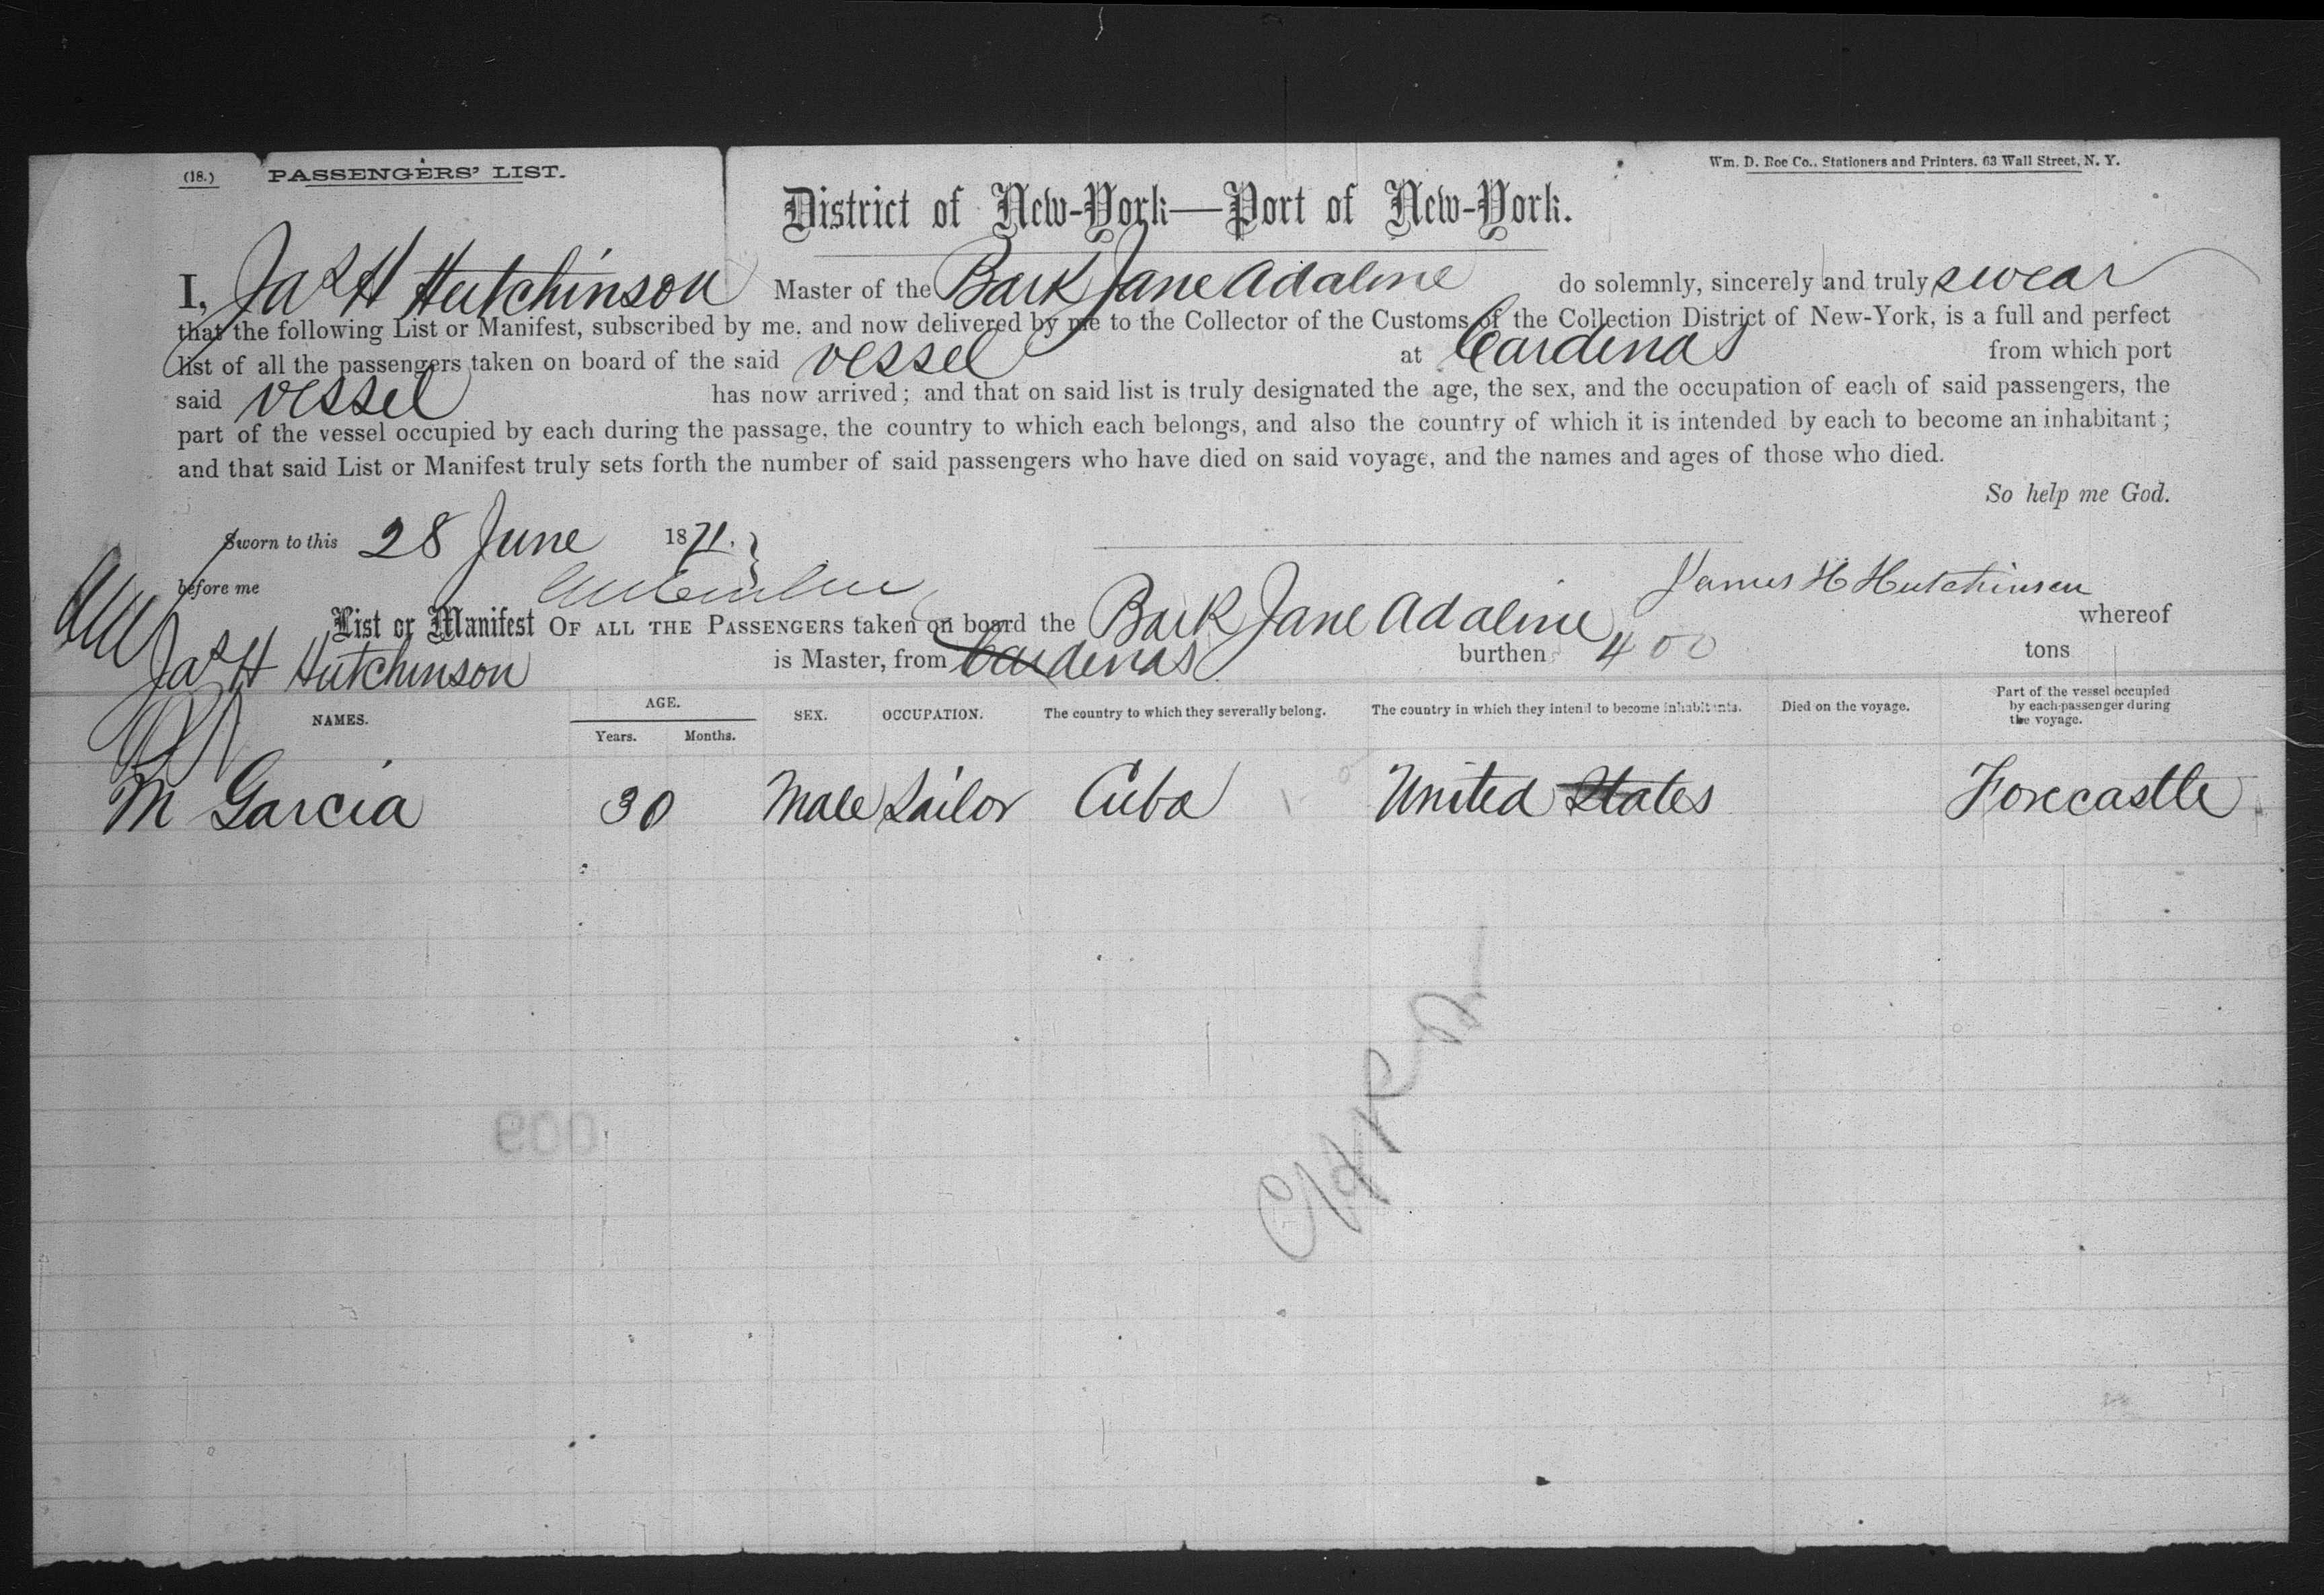 (18.) PASSENGERS' LIST.
Wm. D. Roe Co., Stationers and Printers, 63 Wall Street, N. Y.
District of New-York—Port of New-York.
I, Jas H Hutchinson Master of the Bark Jane Adaline do solemnly, sincerely and truly swear
that the following List or Manifest, subscribed by me, and now delivered by me to the Collector of the Customs of the Collection District of New-York, is a full and perfect
list of all the passengers taken on board of the said vessel at Cardenas from which port
said vessel has now arrived; and that on said list is truly designated the age, the sex, and the occupation of each of said passengers, the
part of the vessel occupied by each during the passage, the country to which each belongs, and also the country of which it is intended by each to become an inhabitant;
and that said List or Manifest truly sets forth the number of said passengers who have died on said voyage, and the names and ages of those who died.
So help me God.
Sworn to this 28 June 1871.
before me
James H Hutchinson
List or Manifest OF ALL THE PASSENGERS taken on board the Bark Jane Adaline whereof
Jas H Hutchinson is Master, from Cardenas burthen 400 tons
NAMES. AGE. Years. Months. SEX. OCCUPATION. The country to which they severally belong. The country in which they intend to become inhabitants. Died on the voyage. Part of the vessel occupied by each passenger during the voyage.
M Garcia 30 Male Sailor Cuba United States Forecastle